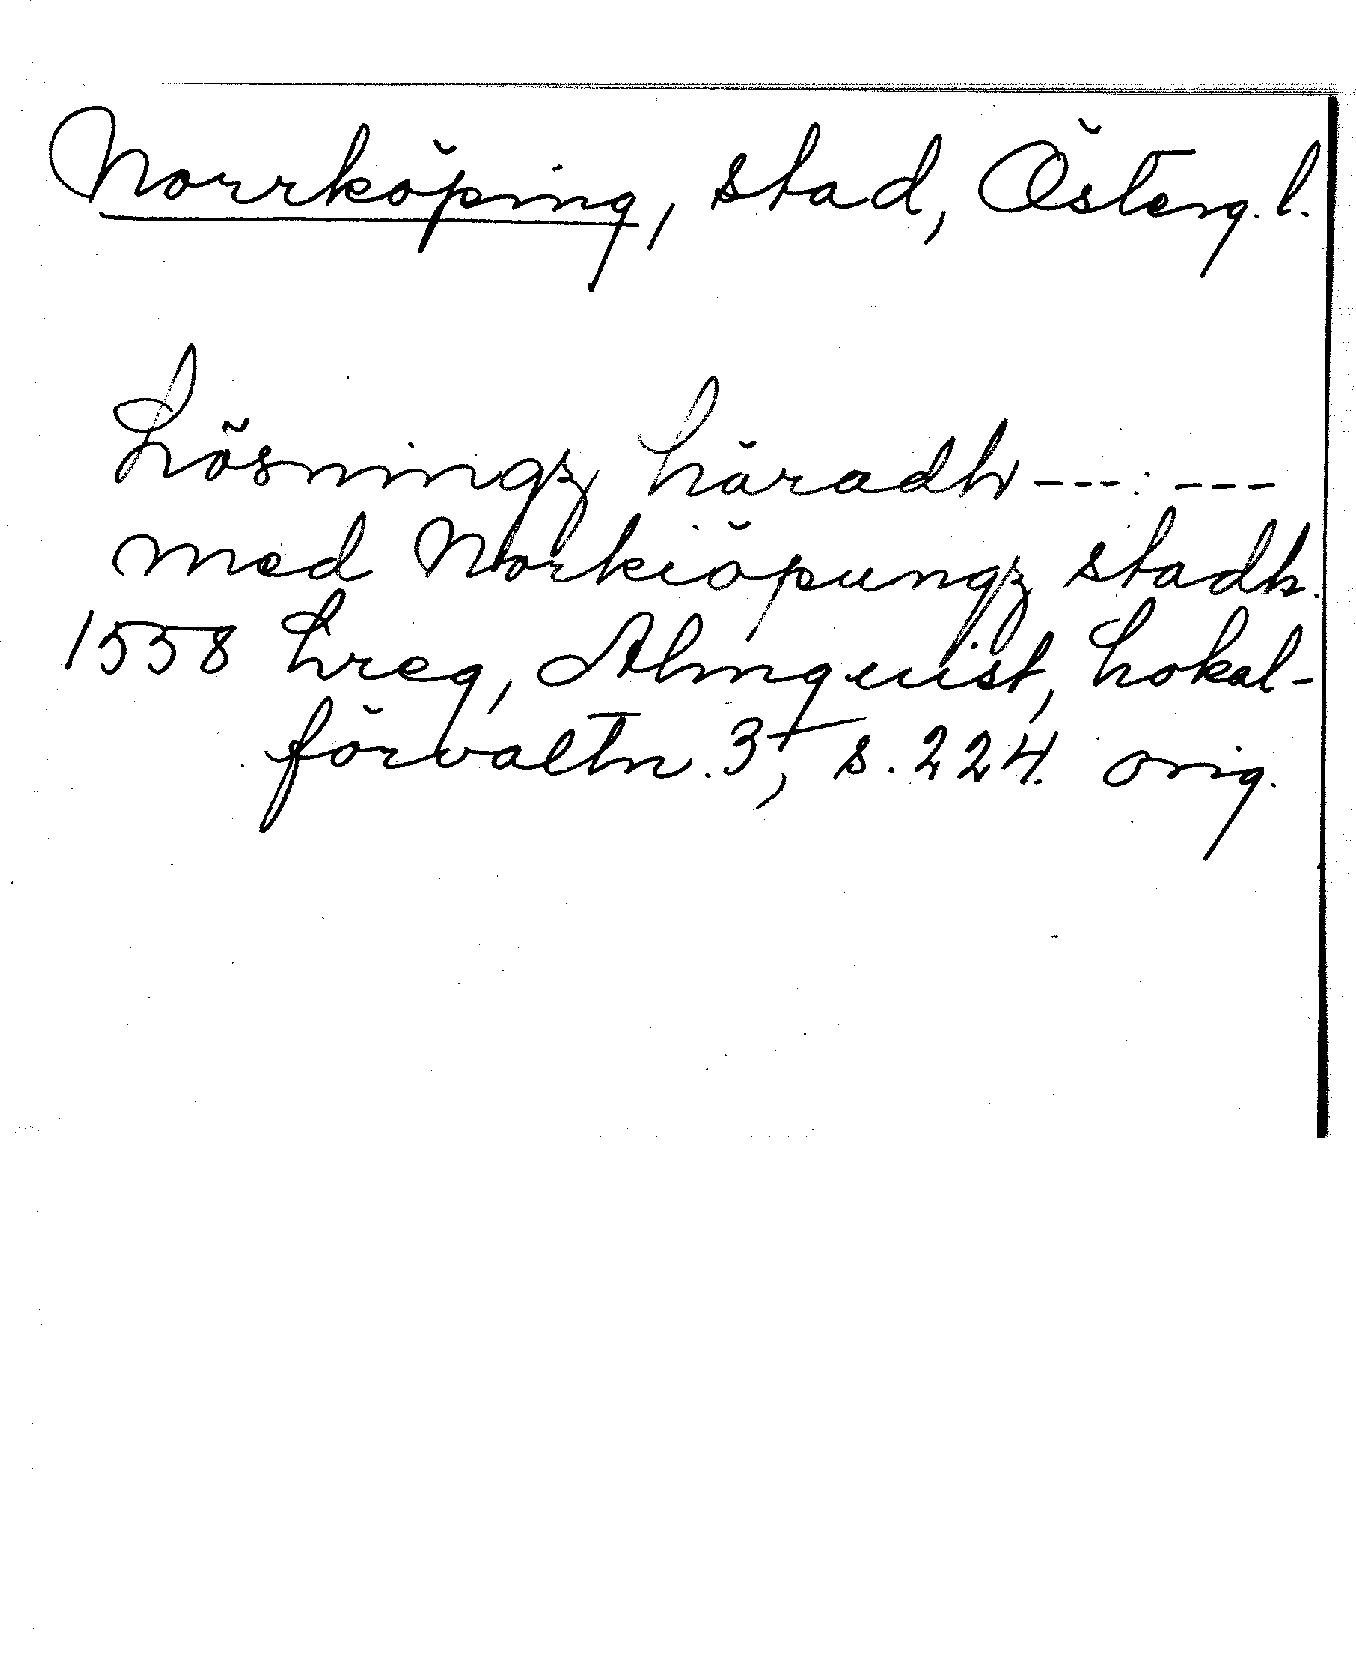 Norrköping, stad, Österg. l.
Lösningz häradh --- : ---
med Norkiöpungz stadh.
1558 Lreg, Almquist, Lokal-
förvaltn. 3, s. 224. orig.